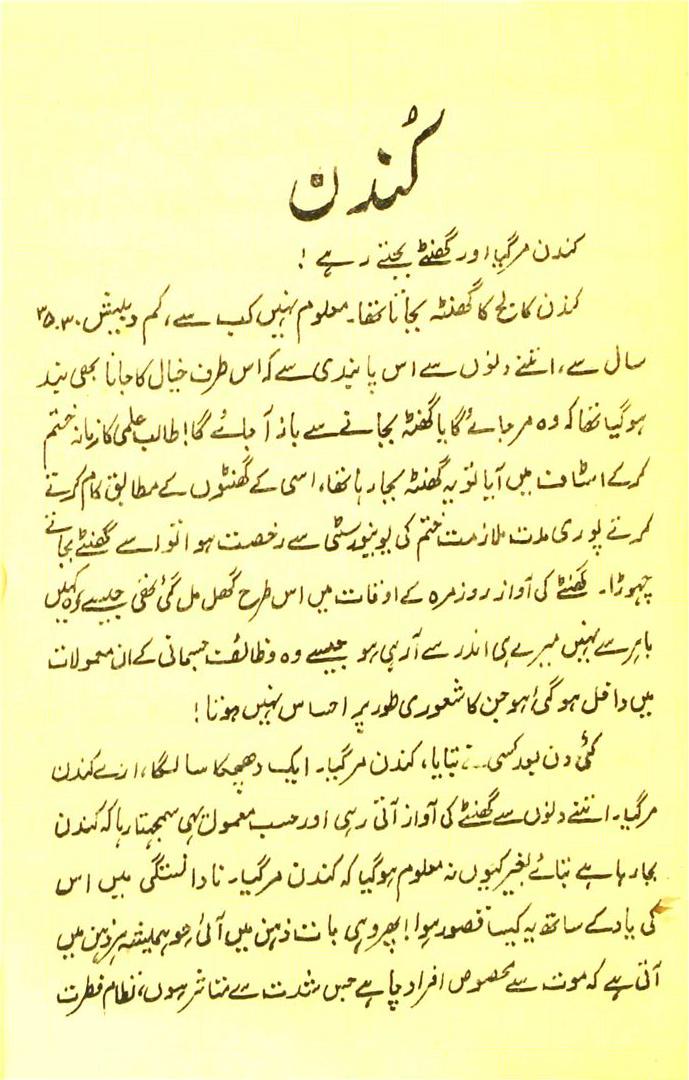 کُندن
کندن مرگیا اور گھنٹے بجتے رہے!
کندن کالج کا گھنٹہ بجاتا تھا۔ معلوم نہیں کب سے، کم و بیش ۳۰۔۳۵
سال سے، اتنے دنوں سے اس پابندی سے کہ اس طرف خیال کا جانا بھی بند
ہوگیا تھا کہ وہ مر جائے گا یا گھنٹہ بجانے سے باز آ جائے گا! طالب علمی کا زمانہ ختم
کرکے اسٹاف میں آیا تو یہ گھنٹہ بجا رہا تھا، اسی کے گھنٹوں کے مطابق کام کرتے
کرتے پوری مدت ملازمت ختم کی یونیورسٹی سے رخصت ہوا تو اسے گھنٹے بجاتے
چھوڑا۔ گھنٹے کی آواز روزمرہ کے اوقات میں اس طرح گھل مل گئی تھی جیسے وہ کہیں
باہر سے نہیں میرے ہی اندر سے آ رہی ہو جیسے وہ وظائف جسمانی کے ان معمولات
میں داخل ہوگئی ہو جن کا شعوری طور پر احساس نہیں ہوتا!
کئی دن بعد کسی نے بتایا، کندن مرگیا۔ ایک دھچکا سا لگا، ارے کندن
مرگیا۔ اتنے دنوں سے گھنٹے کی آواز آتی رہی اور حسب معمول یہی سمجھتا رہا کہ کندن
بجا رہا ہے بتائے بغیر کیوں نہ معلوم ہوگیا کہ کندن مرگیا۔ نادانستگی میں اس
کی یاد کے ساتھ یہ کیسا قصور ہوا! پھر وہی بات ذہن میں آئی جو ہمیشہ ہر ذہن میں
آتی ہے کہ موت سے مخصوص افراد چاہے جس شدت سے متاثر ہوں، نظام فطرت